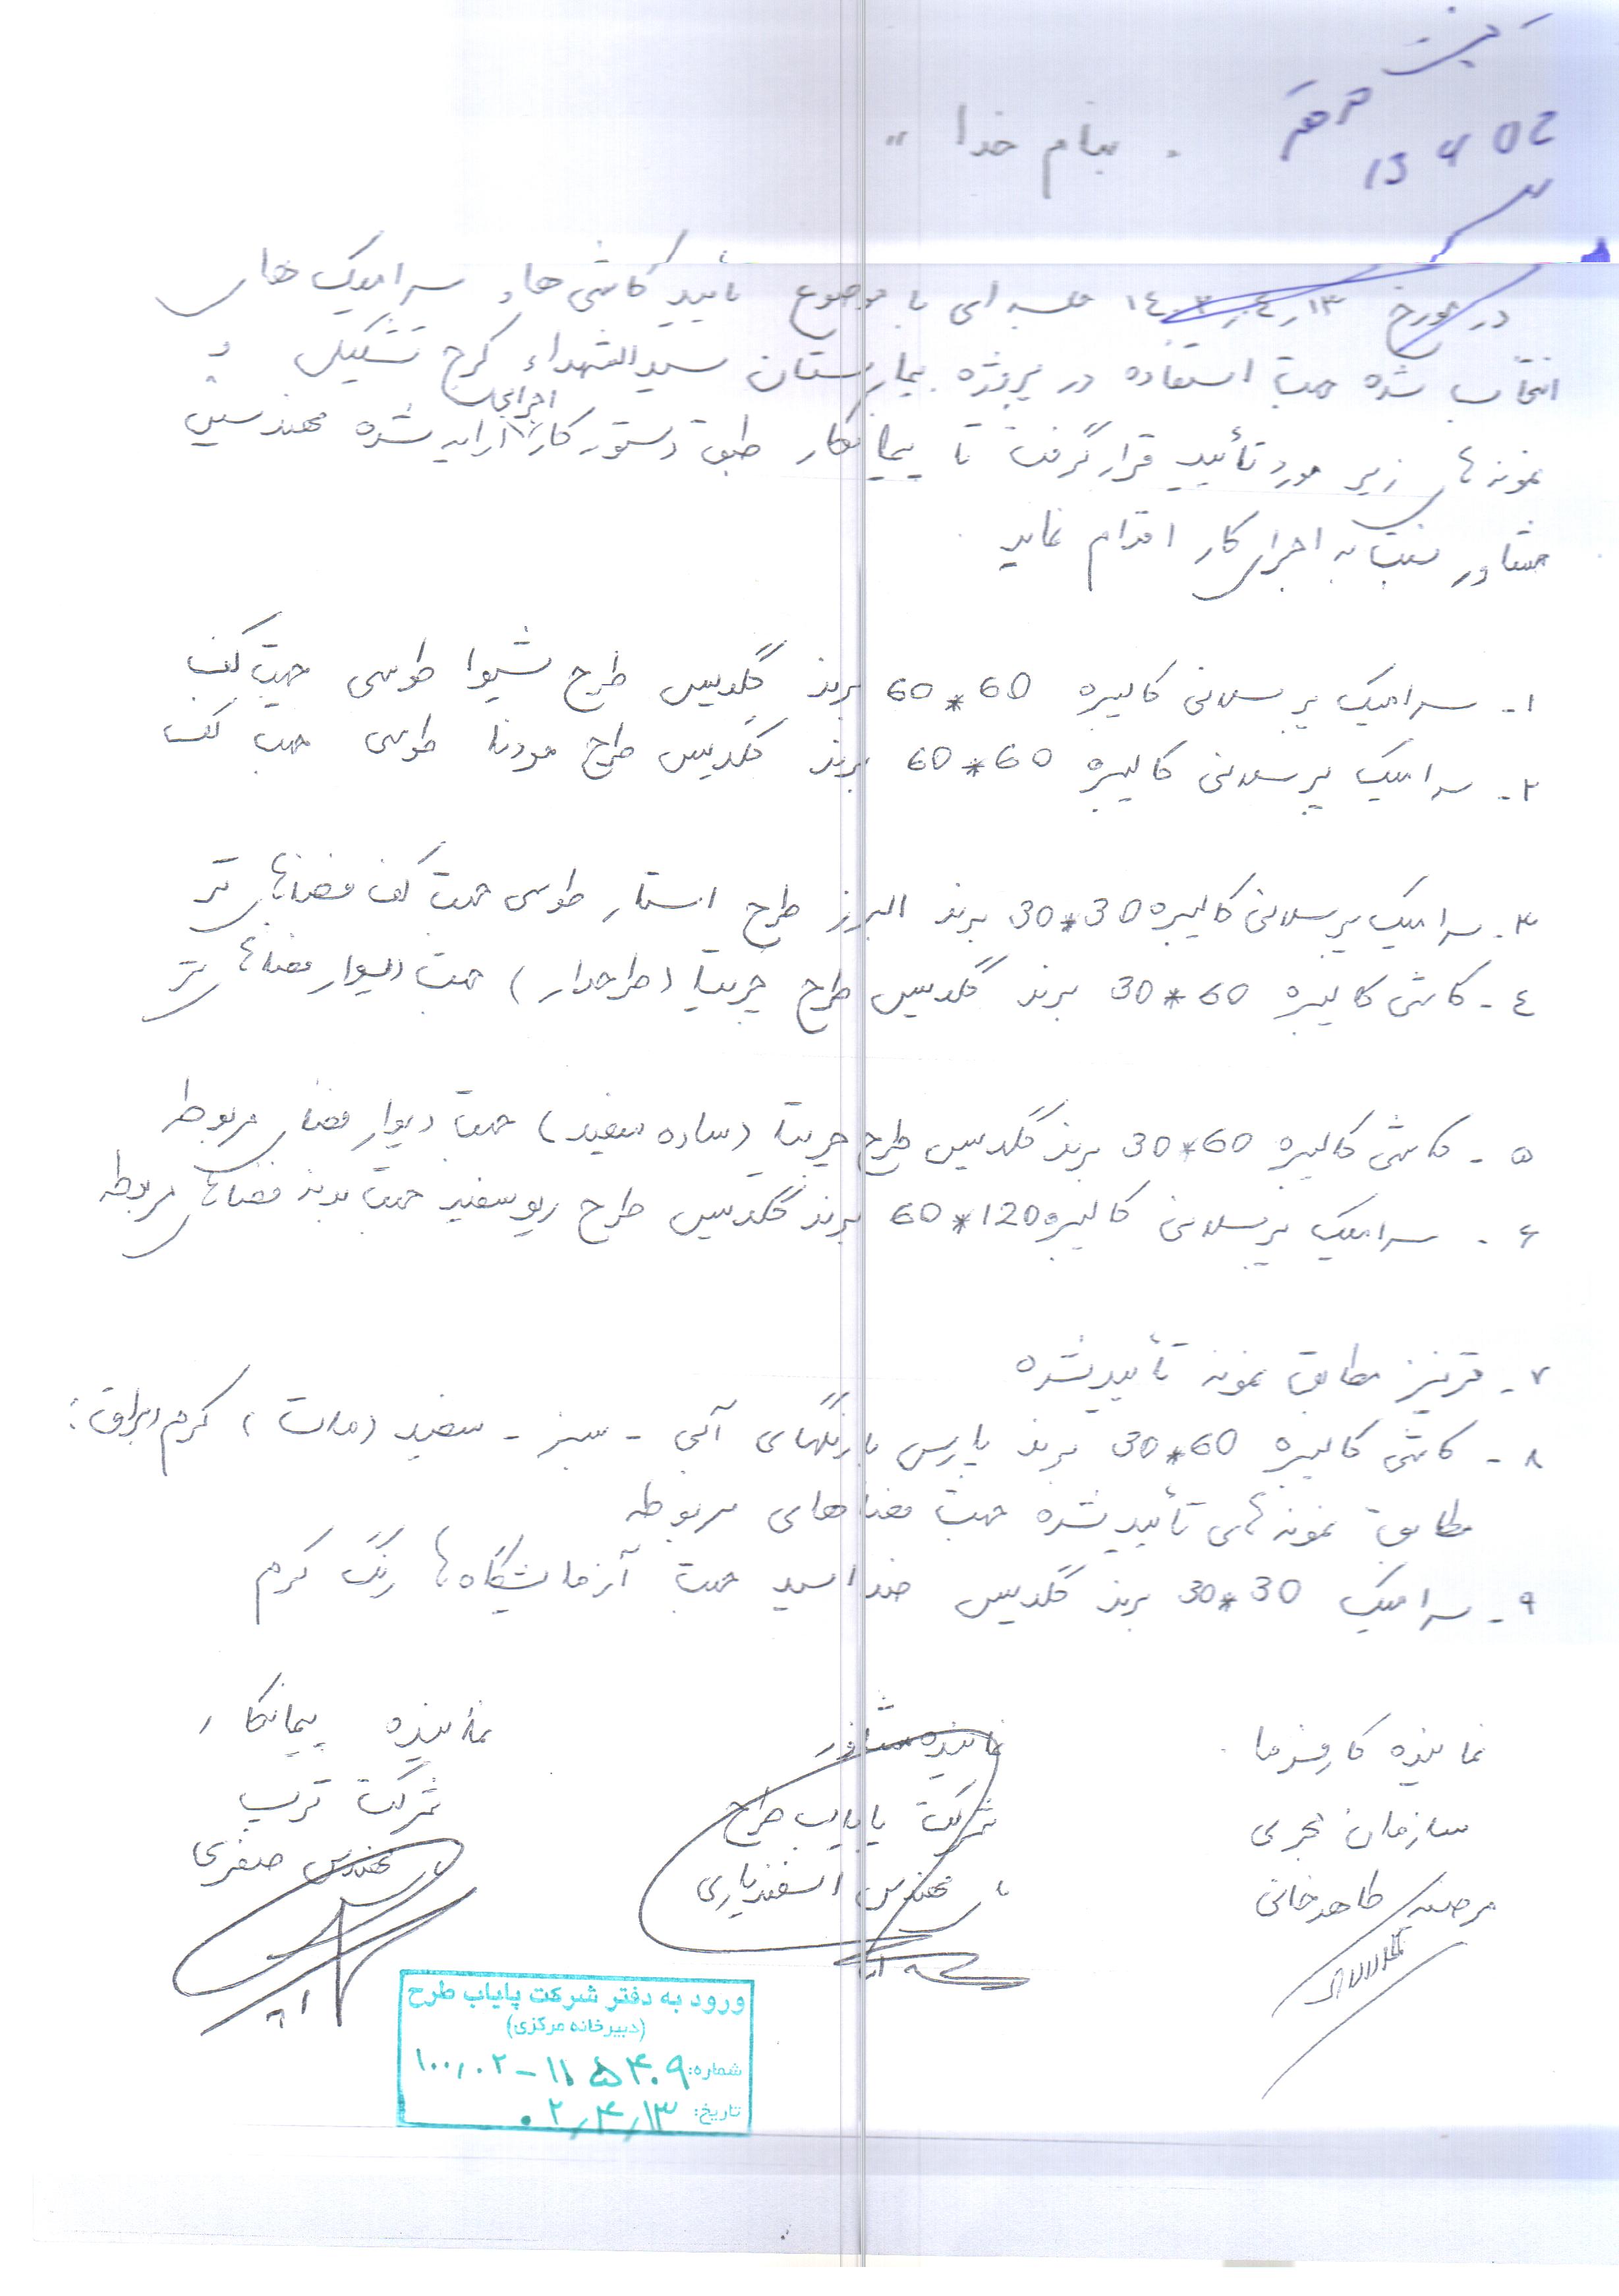 بنام خدا "
در مورخ ۱٤۰۲٫٤٫۱۳ جلسه ای با موضوع تایید کاشی ها و سرامیک های
انتخاب شده جهت استفاده در پروژه بیمارستان سیدالشهداء کرج تشکیل و
نمونه های زیر مورد تأیید قرار گرفت تا پیمانکار طبق دستور کار اجرایی ارایه شده مهندسین
مشاور نسبت به اجرای کار اقدام نماید.
۱- سرامیک پرسلانی کالیبره 60*60 برند گلدیس طرح شیوا طوسی جهت کف
۲- سرامیک پرسلانی کالیبره 60*60 برند گلدیس طرح مودنا طوسی جهت کف
۳- سرامیک پرسلانی کالیبره 30*30 برند البرز طرح استار طوسی جهت کف فضاهای تر
٤- کاشی کالیبره 60*30 برند گلدیس طرح چریتا (طرحدار) جهت دیوار فضاهای تر
۵- کاشی کالیبره 60*30 برند گلدیس طرح چریتا (ساده سفید) جهت دیوار فضای مربوطه
۶- سرامیک پرسلانی کالیبره 120*60 برند گلدیس طرح ریو سفید جهت بدنه فضاهای مربوطه
۷- قرنیز مطابق نمونه تأیید شده
۸- کاشی کالیبره 60*30 برند پارس با رنگهای آبی - سبز - سفید (مات)، کرم براق:
مطابق نمونه های تأیید شده جهت فضاهای مربوطه
۹- سرامیک 30*30 برند گلدیس ضد اسید جهت آزمایشگاه ها رنگ کرم
نماینده کارفرما
سازمان مجری
مرضیه طاهرخانی
نماینده مشاور
شرکت پایاب طرح
مهندس اسفندیاری
نماینده پیمانکار
شرکت
مهندس صفری
ورود به دفتر شرکت پایاب طرح
(دبیرخانه مرکزی)
شماره: ۱۰۰٫۰۲-۱۱۵۴۰۹
تاریخ: ۰۲٫۴٫۱۳